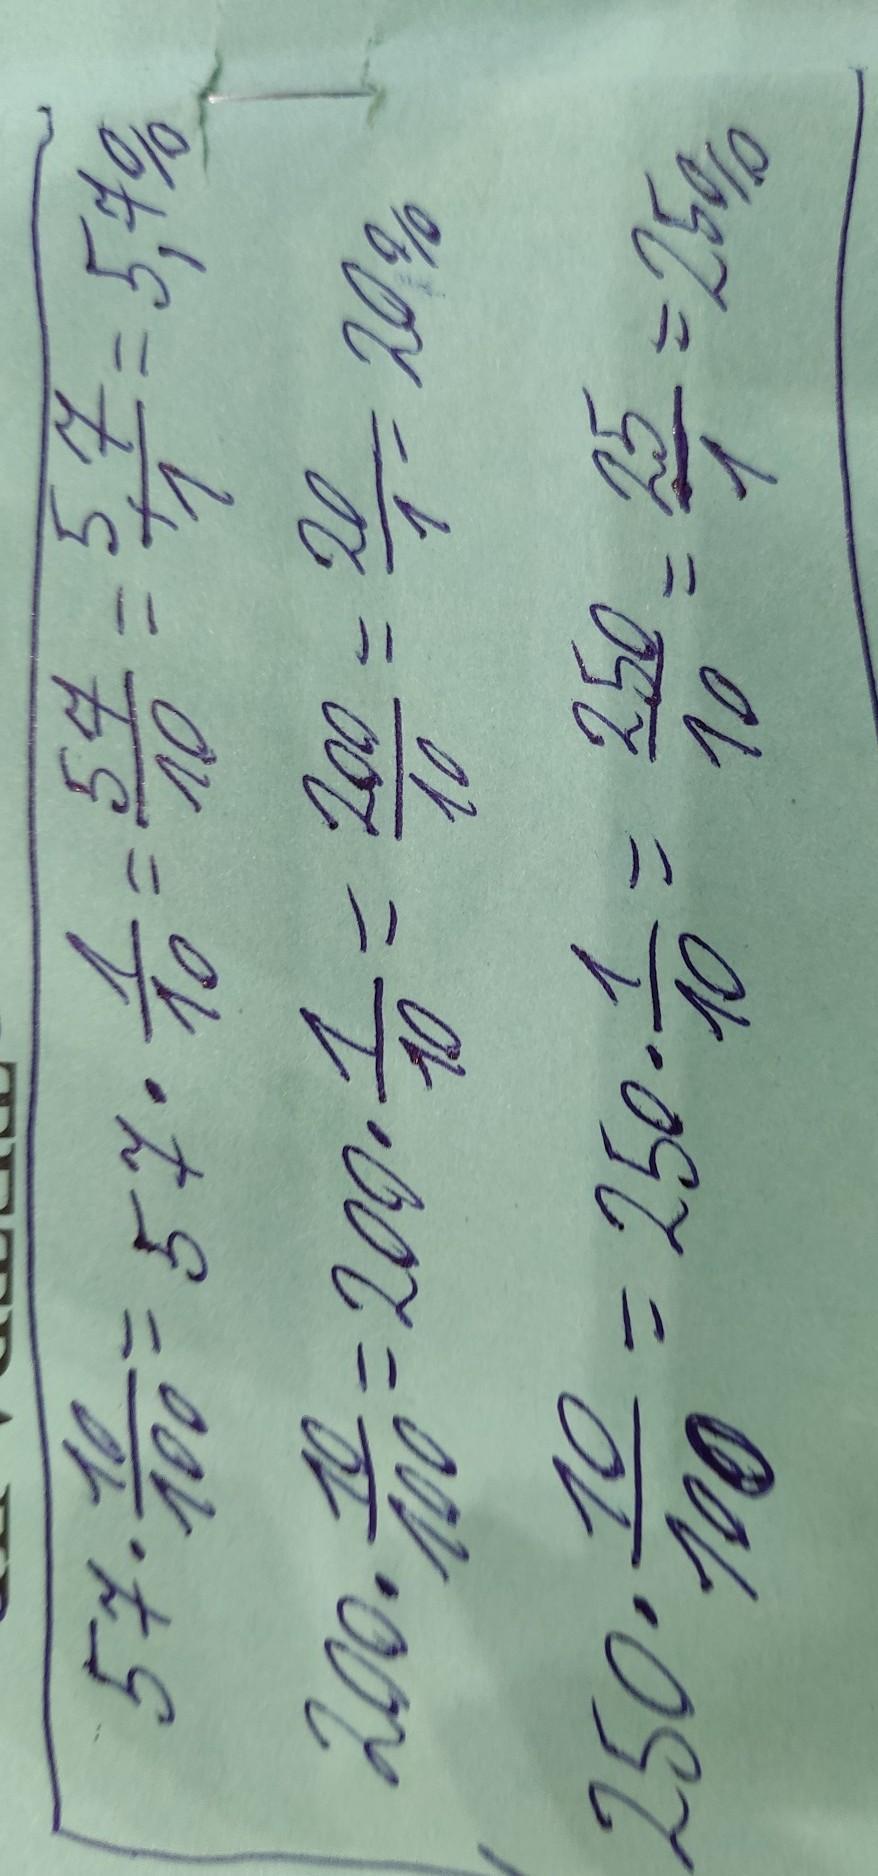 57 · 10/100 = 57 · 1/10 = 57/10 = 5 7/1 = 5,7%
200 · 10/100 = 200 · 1/10 = 200/10 = 20/1 = 20%
250 · 10/100 = 250 · 1/10 = 250/10 = 25/1 = 25%